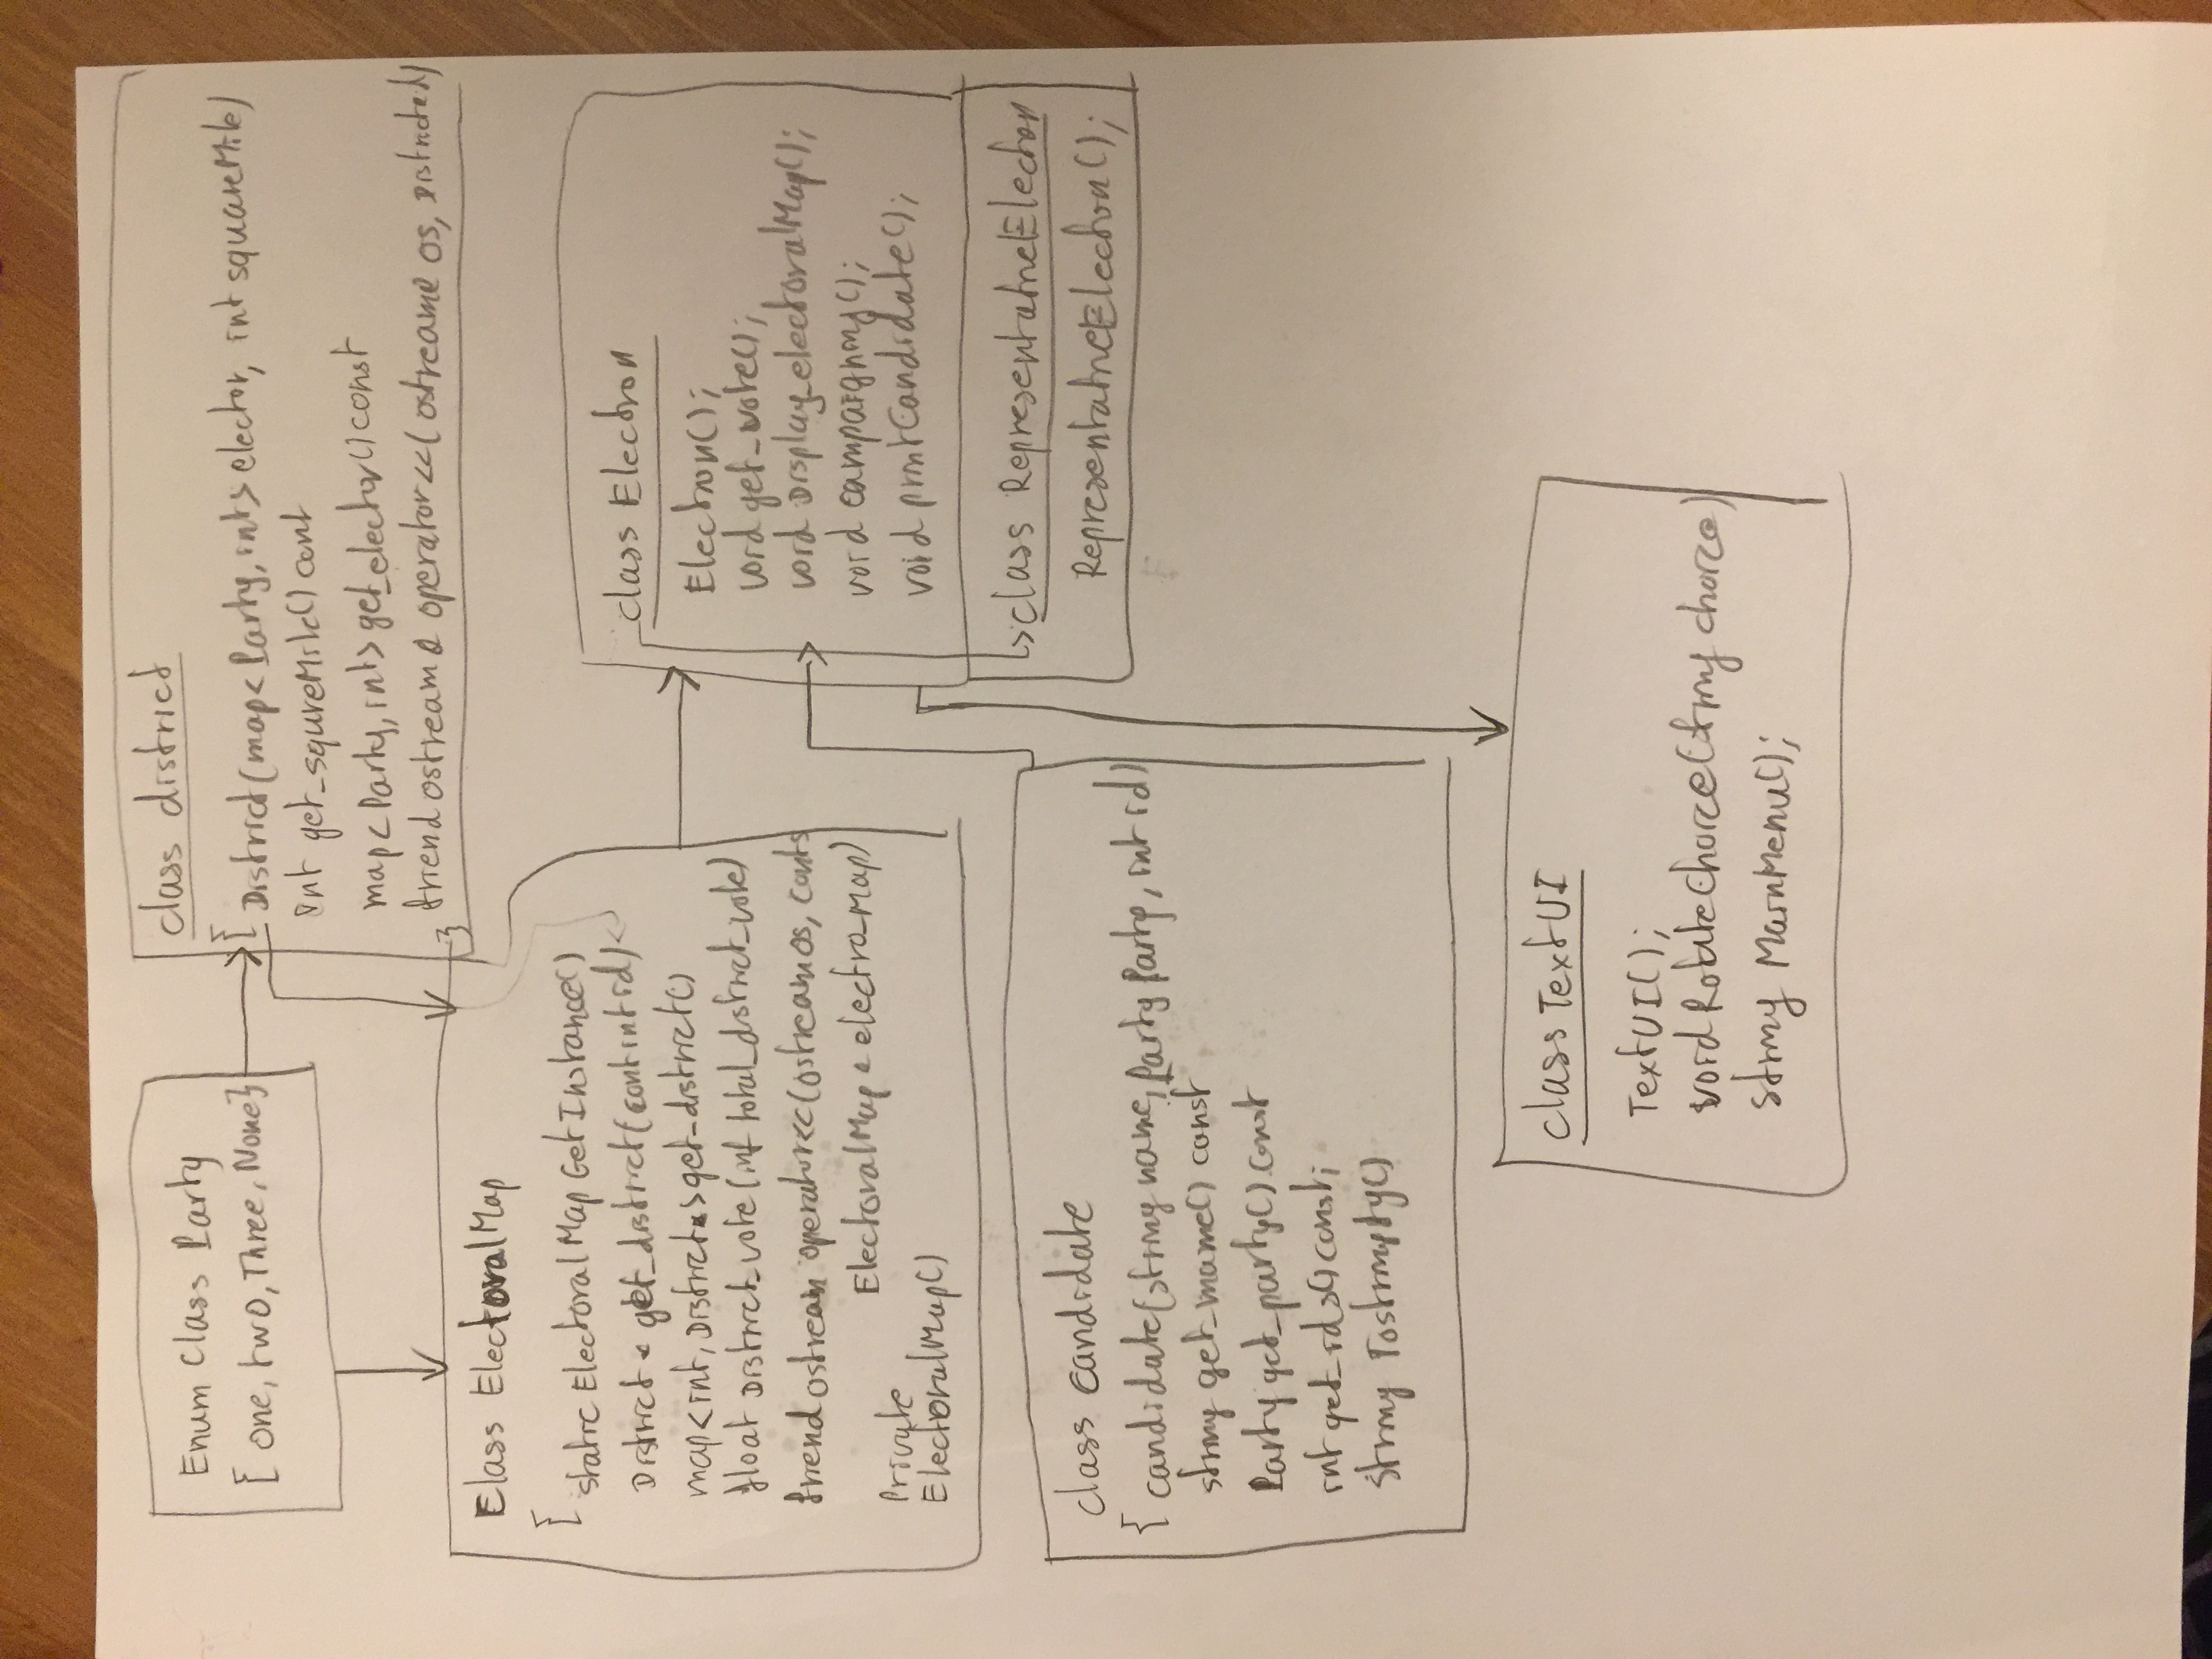 Enum Class Party
{ one, two, Three, None}
class district
{ District(map<Party, int> elector, int squareMile)
int get_squreMile() cont
map<Party, int> get_elector() const
friend ostream & operator<<(ostream& os, District&d)
}
Class ElectoralMap
{
static ElectoralMap GetInstance()
District * get_district(cont int id)
map<int, District*> get_district()
float District_vote(int total_district_vote)
friend ostream operator<<(ostream os, conts
ElectoralMap & electro_Map)
Private
ElectoralMap()
class Election
Election();
void get_vote();
void Display_electoralMap();
void campaigning();
void printCandidate();
class RepresentativeElection
RepresentativeElection();
class candidate
{ candidate(string name, Party Party, int id)
string get_name() const
Party get_party() const
int get_ids() const;
string Tostringpty()
class TextUI
TextUI();
void RotateChoice(string choice)
string MainMenu();